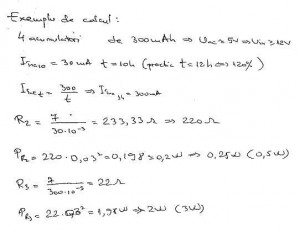 Exemplu de calcul:
4 acumulatori de 300mAh ⇒ Uac ≅ 5V ⇒ Uin ≥ 12V
Iînc10 = 30mA t = 10h (practic t = 12h ⇔ 120%)
Iînct = 300/t ⇒ Iînc1h = 300mA
R2 = 7/30·10⁻³ = 233,33Ω ⇒ 220Ω
PR2 = 220·0,03² = 0,198 ≅ 0,2W ⇒ 0,25W (0,5W)
R3 = 7/300·10⁻³ = 22Ω
PR3 = 22·0,3² = 1,98W ⇒ 2W (3W)